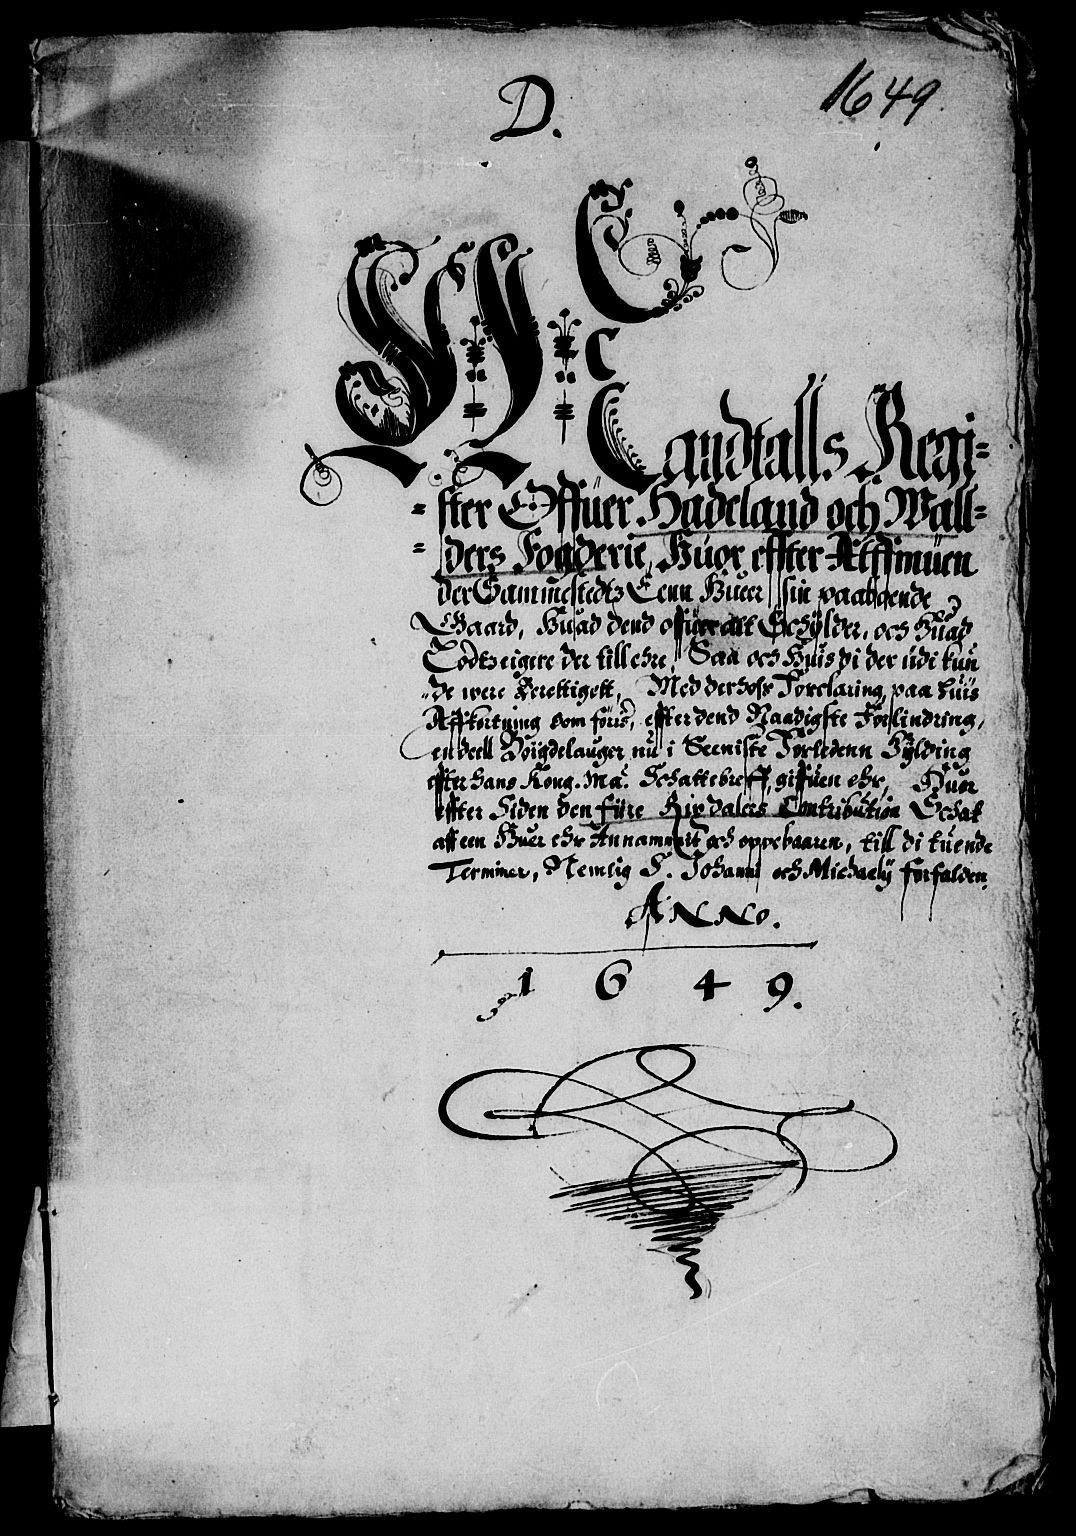 D.
1649
Mandtalls Regi=
=ster Offuer Hadeland och Wall=
=ders Fougderie, Huor effter Aff
der Sammestedtz Eenn Hueer sin paaboende
Gaard, Huad dend offuer alt Schÿlder, och Huad
Lodtzeigere der till ehre, Saa och Huis di der udi kun
de were Berettigett, Med derhoss Forclaring, paa huis
Affkortning som føris, effter dend Naadigste Forlindring,
endeell Boigdelauger nu i Seeniste Forledenn Hÿlding
effter hans Kong. Ma. Schattebreff, giffuen ehr, Huor
effter Siden den fire Rixdalers Contribution Schat
aff een Huer ehr Annammit och oppebaaren, till di tuende
Terminer, Nemlig S. Johanni och Michaelÿ forfalden.
Anno.
1649.